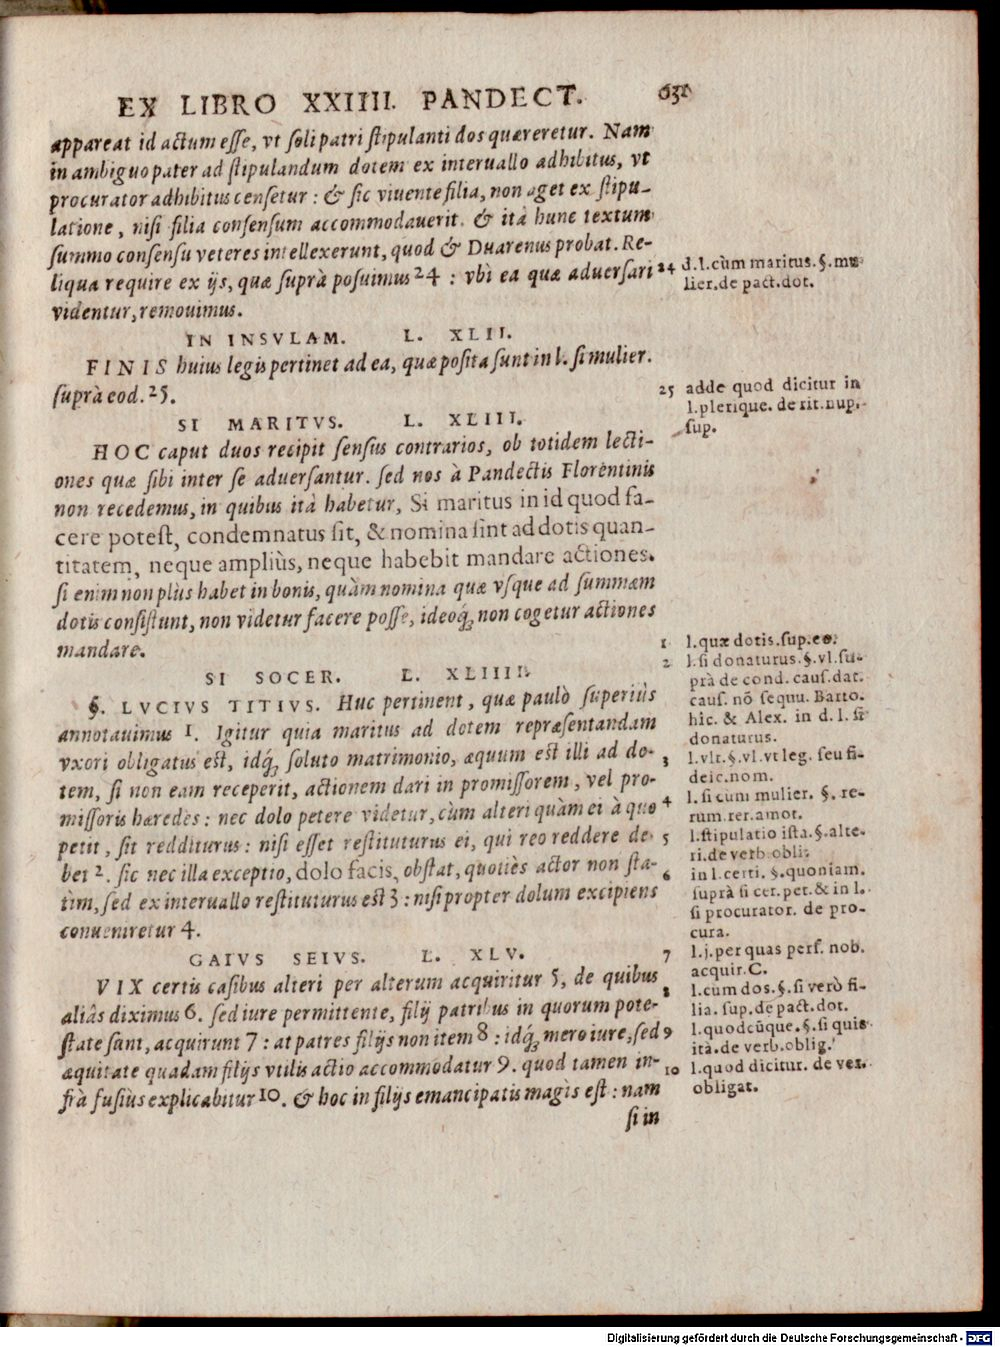 EX LIBRO XXIIII. PANDECT. 631
appareat id actum esse, vt soli patri stipulanti dos quæreretur. Nam
in ambiguo pater ad stipulandum dotem ex interuallo adhibitus, vt
procurator adhibitus censetur: & sic viuente filia, non aget ex stipu-
latione, nisi filia consensum accommodauerit. & ità hunc textum
summo consensu veteres intellexerunt, quod & Duarenus probat. Re-
liqua require ex ijs, quæ suprà posuimus 24 : vbi ea quæ aduersari
videntur, remouimus.
IN INSVLAM. L. XLII.
FINIS huius legis pertinet ad ea, quæ posita sunt in l. si mulier.
suprà eod. 25.
SI MARITVS. L. XLIII.
HOC caput duos recipit sensus contrarios, ob totidem lecti-
ones quæ sibi inter se aduersantur. sed nos à Pandectis Florentinis
non recedemus, in quibus ità habetur, Si maritus in id quod fa-
cere potest, condemnatus sit, & nomina sint ad dotis quan-
titatem, neque ampliùs, neque habebit mandare actiones.
si enim non plùs habet in bonis, quàm nomina quæ vsque ad summam
dotis consistunt, non videtur facere posse, ideoq́; non cogetur actiones
mandare.
SI SOCER. L. XLIIII.
§. LVCIVS TITIVS. Huc pertinent, quæ paulò superiùs
annotauimus 1. Igitur quia maritus ad dotem repræsentandam
vxori obligatus est, idq́; soluto matrimonio, æquum est illi ad do-
tem, si non eam receperit, actionem dari in promissorem, vel pro-
missoris hæredes: nec dolo petere videtur, cùm alteri quàm ei à quo
petit, sit redditurus: nisi esset restituturus ei, qui reo reddere de-
bet 2. sic nec illa exceptio, dolo facis, obstat, quotiès actor non sta-
tìm, sed ex interuallo restituturus est 3: nisi propter dolum excipiens
conueniretur 4.
GAIVS SEIVS. L. XLV.
VIX certis casibus alteri per alterum acquiritur 5, de quibus
aliâs diximus 6. sed iure permittente, filij patribus in quorum pote-
state sunt, acquirunt 7: at patres filijs non item 8: idq́; mero iure, sed
æquitate quadam filijs vtilis actio accommodatur 9. quod tamen in-
frà fusiùs explicabitur 10. & hoc in filijs emancipatis magìs est: nam
si in
24 d. l. cùm maritus. §. mu-
lier. de pact. dot.
25 adde quod dicitur in
l. plerique. de rit. nup.
sup.
1 l. quæ dotis. sup. eo.
2 l. si donaturus. §. vl. su-
prà de cond. caus. dat.
caus. nõ sequu. Barto-
hic. & Alex. in d. l. si
donaturus.
3 l. vlt. §. vl. vt leg. seu fi-
deic. nom.
4 l. si cùm mulier. §. re-
rum. rer. amot.
5 l. stipulatio ista. §. alte-
ri. de verb. obli.
6 in l. certi. §. quoniam.
suprà si cer. pet. & in l.
si procurator. de pro-
cura.
7 l. j. per quas pers. nob.
acquir. C.
8 l. cùm dos. §. si verò fi-
lia. sup. de pact. dot.
9 l. quodcũque. §. si quis
ità. de verb. oblig.
10 l. quod dicitur. de ver.
obligat.
Digitalisierung gefördert durch die Deutsche Forschungsgemeinschaft - DFG